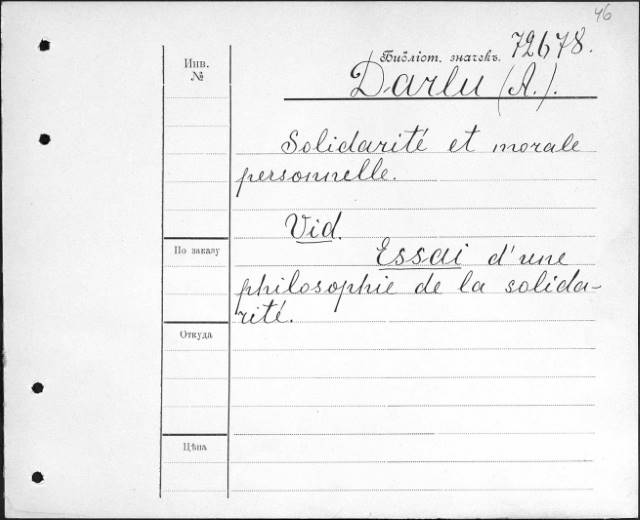 46
Инв.
№
Библіот. значекъ. 72678.
Darlu (A.).
Solidarité et morale
personnelle.
Vid.
Essai d'une
По заказу
philosophie de la solida-
rité.
Откуда
Цѣна